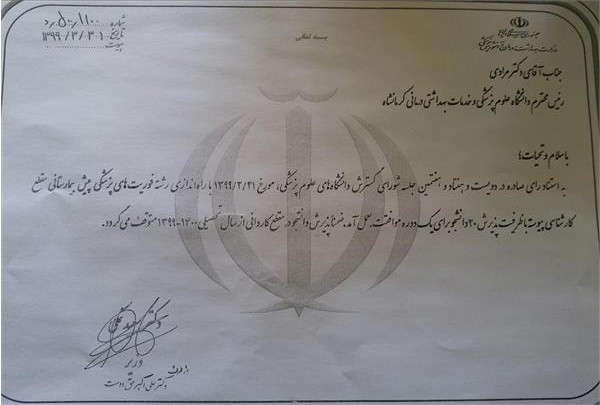 بسمه تعالی
جمهوری اسلامی ایران
وزارت بهداشت، درمان و آموزش پزشکی
شماره ۱۱۰۰/۵۰۰/د
تاریخ ۱۳۹۹/۳/۳۱
پیوست
جناب آقای دکتر مرادی
رئیس محترم دانشگاه علوم پزشکی و خدمات بهداشتی درمانی کرمانشاه
با سلام و تحیات؛
به استناد رای صادره در دویست و هفتاد و هفتمین جلسه شورای گسترش دانشگاه‌های علوم پزشکی، مورخ ۱۳۹۹/۲/۲۱ با راه اندازی رشته فوریت های پزشکی پیش بیمارستانی مقطع
کارشناسی پیوسته با ظرفیت پذیرش ۲۰ دانشجو برای یک دوره موافقت به عمل آمد. ضمنا پذیرش دانشجو در مقطع کاردانی از سال تحصیلی ۱۴۰۰-۱۳۹۹ متوقف می گردد.
دکتر سعید نمکی
وزیر
از طرف
دکتر علی اکبر حق دوست